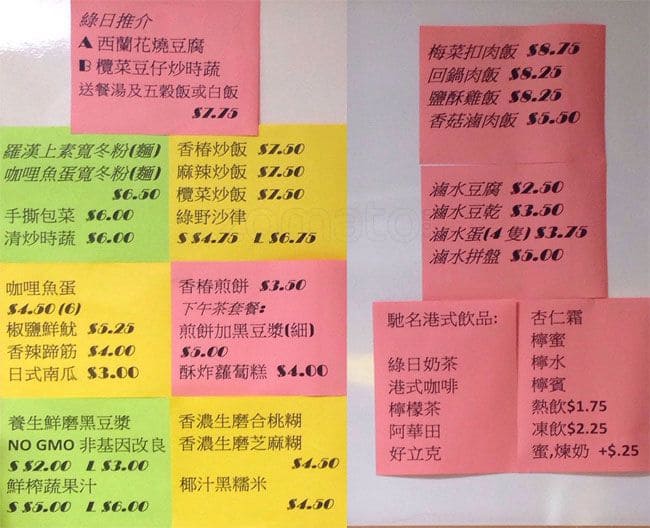 綠日推介
A 西蘭花燒豆腐
B 欖菜豆仔炒時蔬
送餐湯及五穀飯或白飯
$7.75
羅漢上素寬冬粉(麵)
咖哩魚蛋寬冬粉(麵)
$6.50
手撕包菜 $6.00
清炒時蔬 $6.00
香椿炒飯 $7.50
麻辣炒飯 $7.50
欖菜炒飯 $7.50
綠野沙律
S $4.75 L $6.75
咖哩魚蛋
$4.50 (6)
椒鹽鮮魷 $5.25
香辣蹄筋 $4.00
日式南瓜 $3.00
香椿煎餅 $3.50
下午茶套餐:
煎餅加黑豆漿(細)
$5.00
酥炸蘿蔔糕 $4.00
養生鮮磨黑豆漿
NO GMO 非基因改良
S $2.00 L $3.00
鮮榨蔬果汁
S $5.00 L $6.00
香濃生磨合桃糊
香濃生磨芝麻糊
$4.50
椰汁黑糯米
$4.50
梅菜扣肉飯 $8.75
回鍋肉飯 $8.25
鹽酥雞飯 $8.25
香菇滷肉飯 $5.50
滷水豆腐 $2.50
滷水豆乾 $3.50
滷水蛋(4 隻) $3.75
滷水拼盤 $5.00
馳名港式飲品:
綠日奶茶
港式咖啡
檸檬茶
阿華田
好立克
杏仁霜
檸蜜
檸水
檸賓
熱飲$1.75
凍飲$2.25
蜜,煉奶 +$.25